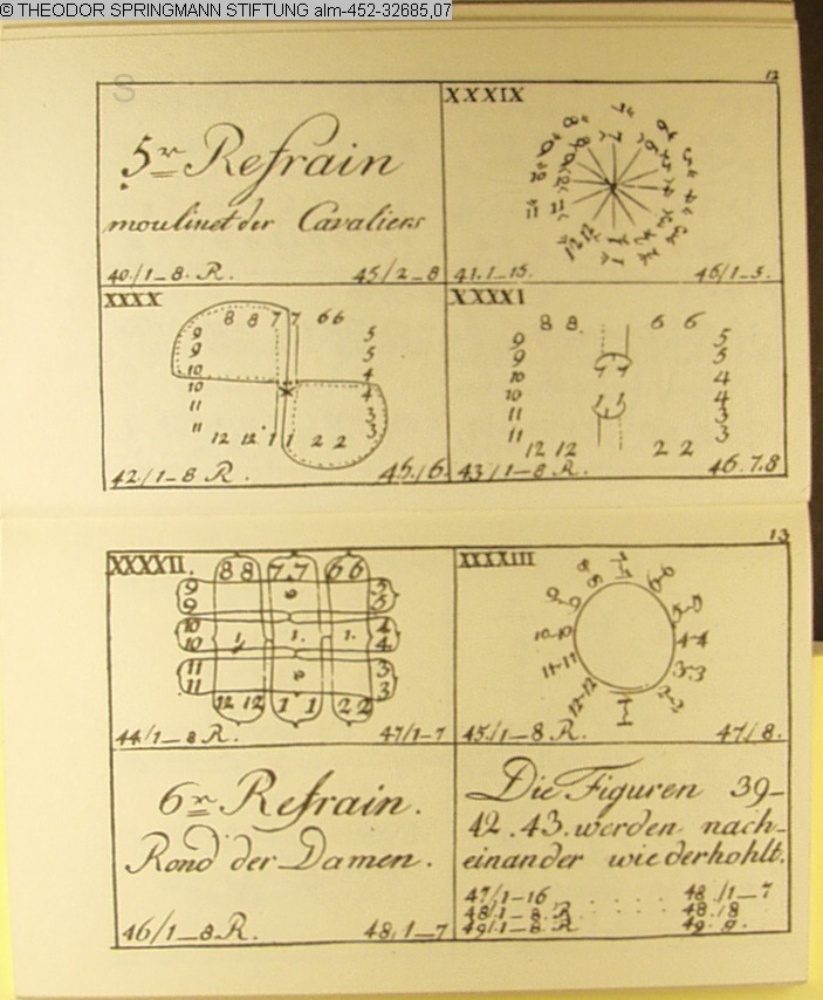 © THEODOR SPRINGMANN STIFTUNG alm-452-32685,07
12
S
5r Refrain
moulinet der Cavaliers
40./1_8. R. 45/2_8
XXXIX
7 7
8 8 6 6
9 9 5 5
10 10 4 4
11 11 3 3
12 12 1 1 2 2
41.1_15. 46/1_5.
XXXX
8 8 7 7 6 6
9 5
9 5
10 4
10 4
11 3
11 3
12 12 1 1 2 2
42/1_8 R. 45./6.
XXXXI
8 8 6 6
9 5
9 5
10 7 7 4
10 1 1 4
11 3
11 3
12 12 2 2
43/1_8 R. 46.7.8
13
XXXXII.
8 8 7.7 6 6
9 5
9 5
10 4
10 1. 1. 1. 4
11 3
11 3
12 12 1 1 2 2
44/1_8 R. 47/1-7
XXXXIII
7-7
8-8 6-6
9-9 5-5
10-10 4-4
11-11 3-3
12-12 2-2
45./1_8. R. 47/8.
6r Refrain.
Rond der Damen.
46/1_8.R. 48,1_7
Die Figuren 39_
42.43.werden nach_
einander wiederhohlt.
47/1-16 . . . . . 48./1_7
48/1_8.R . . . . 48./8
49/.1_8. R 49. 9.